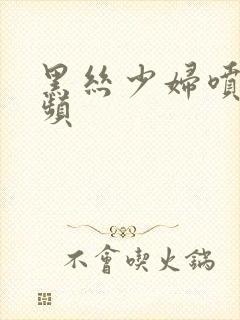 黑絲少婦噴
頻
不會喫火鍋